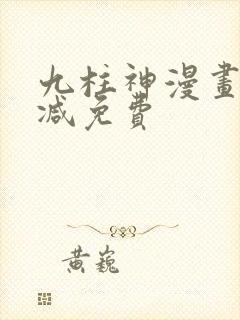 九柱神漫畫
减免費
黃巍